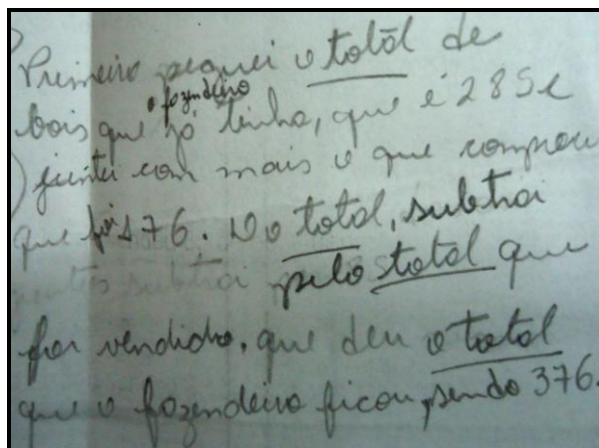 Primeiro peguei o total de
bois que o fazendeiro já tinha, que é 285 e
juntei com mais o que comprou
que foi 176. Do total, subtrai
pelo total que
for vendido, que deu o total
que o fazendeiro ficou, sendo 376.